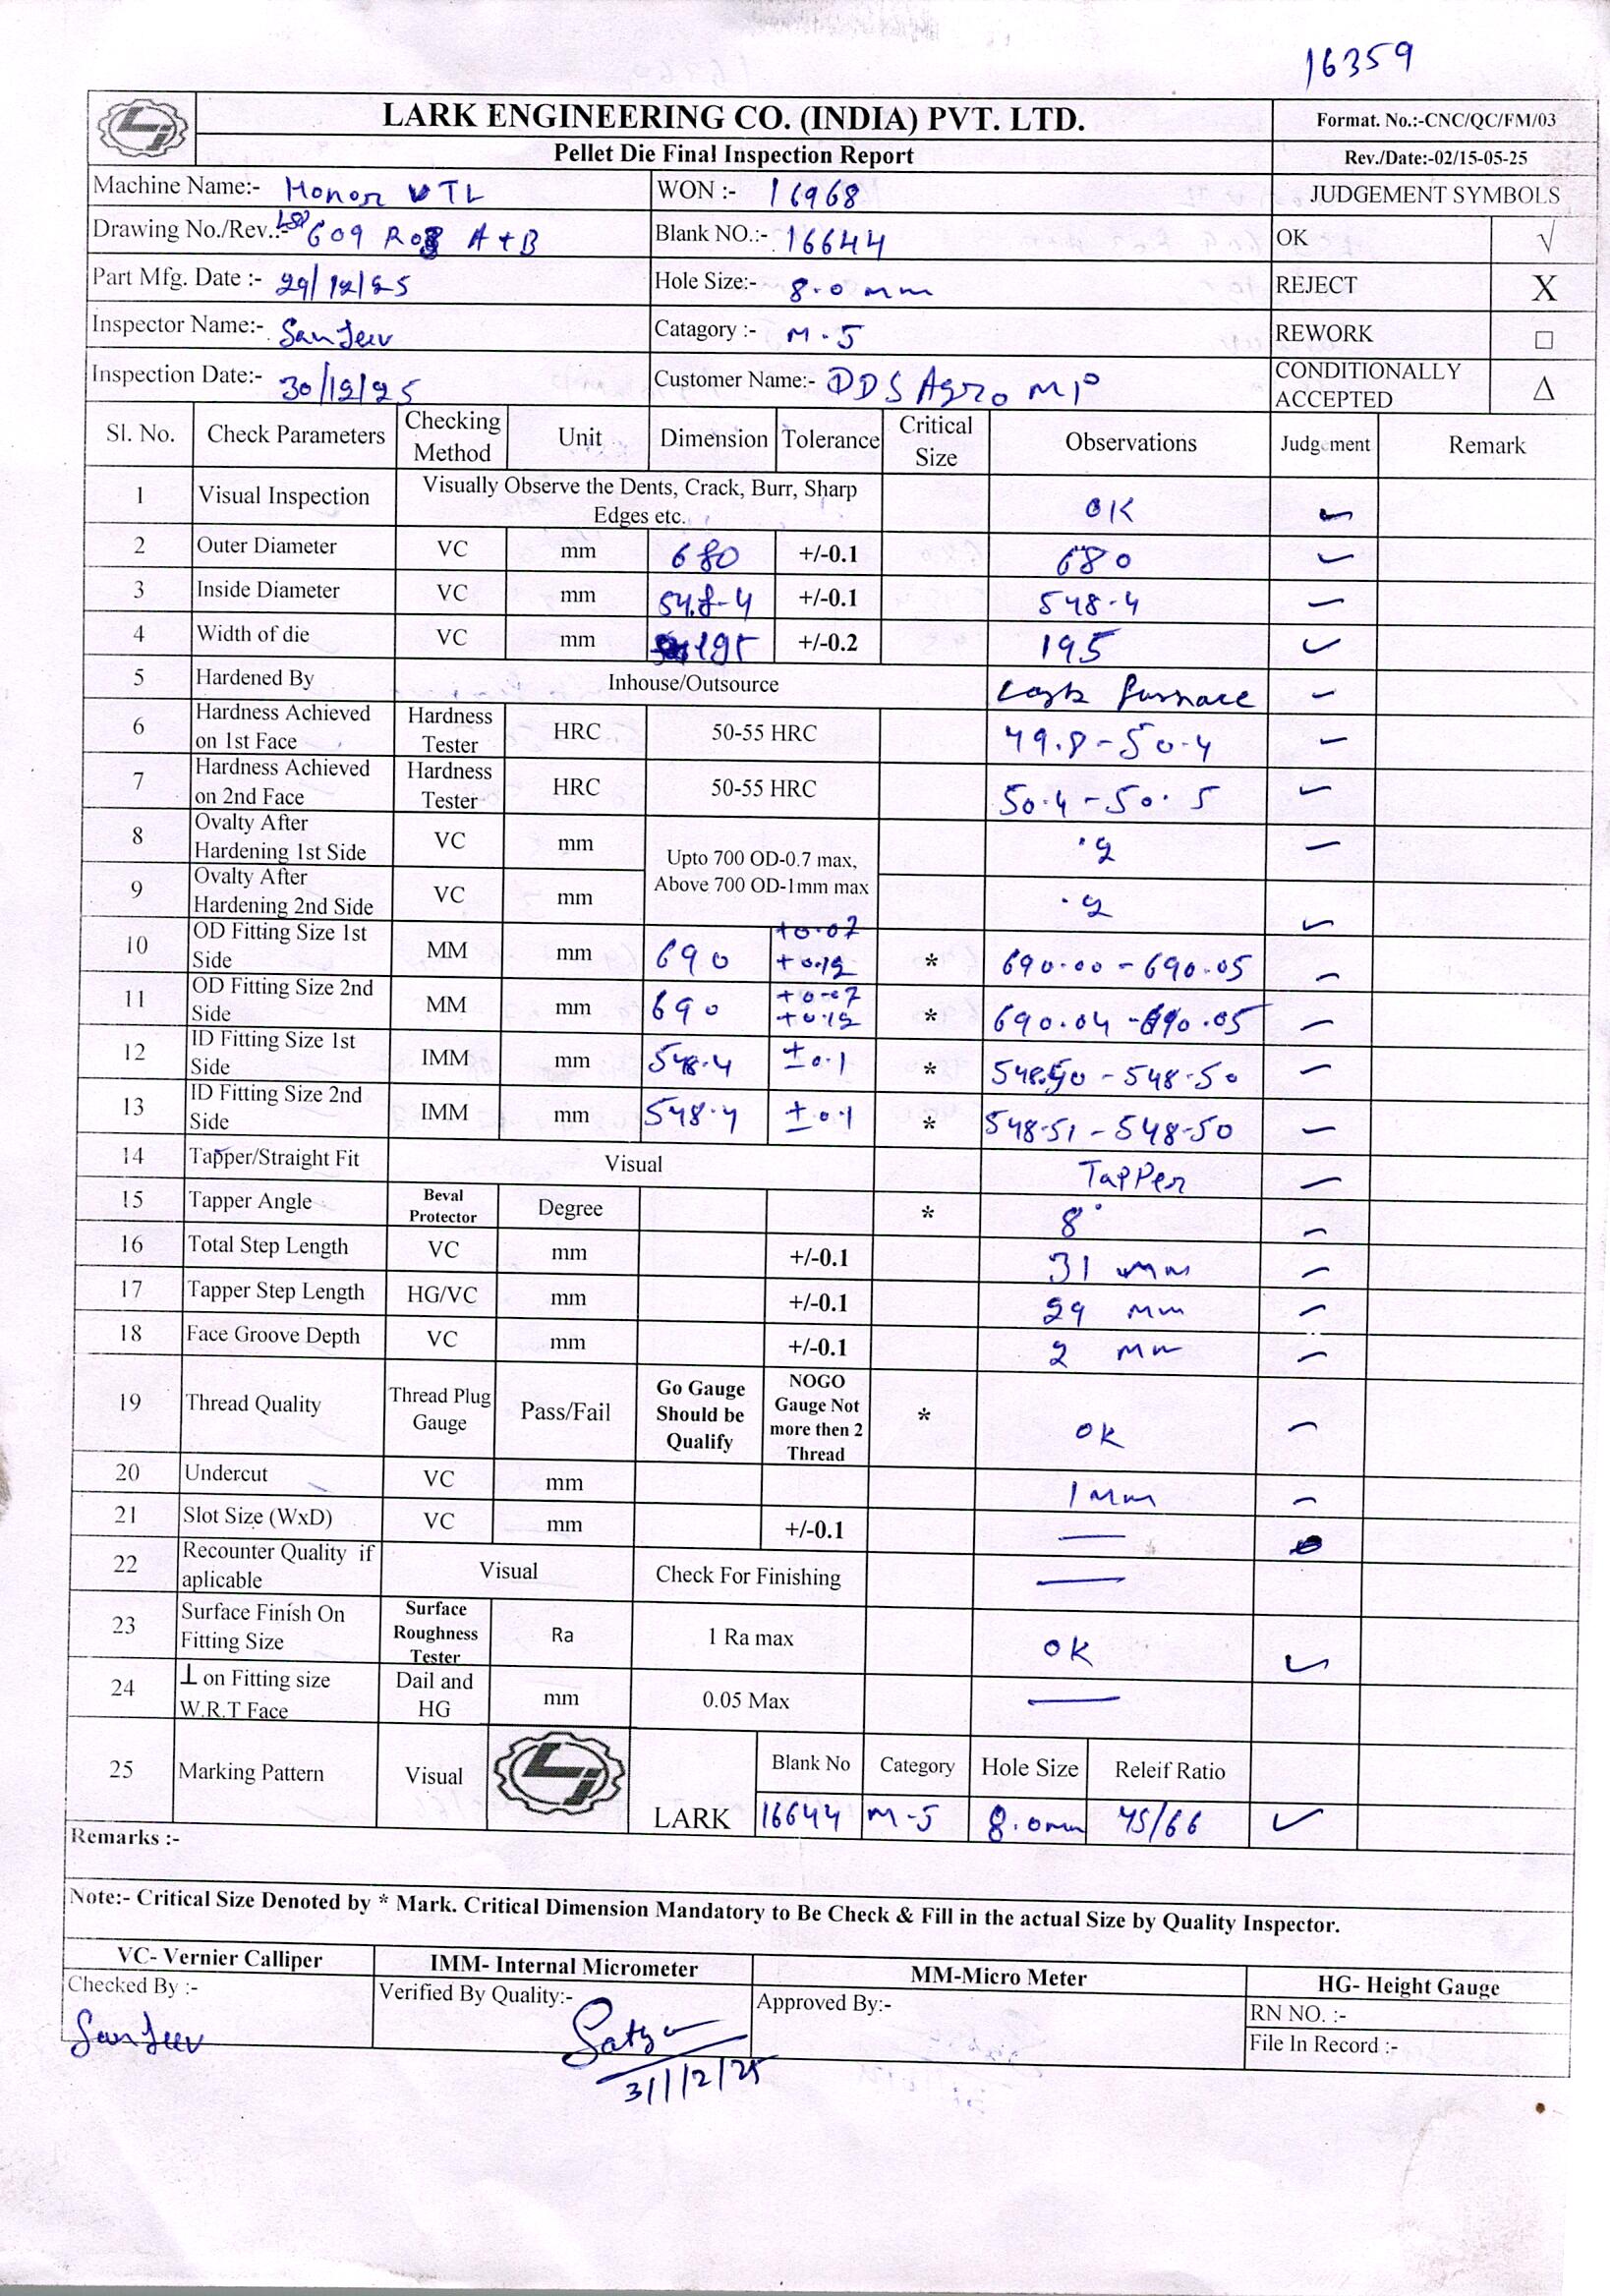 16359
LARK ENGINEERING CO. (INDIA) PVT. LTD.
Format. No.:-CNC/QC/FM/03
Pellet Die Final Inspection Report
Rev./Date:-02/15-05-25
Machine Name:- Honor VTL WON :- 16968 JUDGEMENT SYMBOLS
Drawing No./Rev.:- 609 R03 A+B Blank NO.:- 16644 OK √
Part Mfg. Date :- 29/12/25 Hole Size:- 8.0 mm REJECT X
Inspector Name:- SanJeev Catagory :- M-5 REWORK □
Inspection Date:- 30/12/25 Customer Name:- DDS Agro MP CONDITIONALLY ACCEPTED Δ
Sl. No. Check Parameters Checking Method Unit Dimension Tolerance Critical Size Observations Judgement Remark
1 Visual Inspection Visually Observe the Dents, Crack, Burr, Sharp Edges etc. OK ✓
2 Outer Diameter VC mm 680 +/-0.1 680 ✓
3 Inside Diameter VC mm 548-4 +/-0.1 548-4 ✓
4 Width of die VC mm 195 +/-0.2 195 ✓
5 Hardened By Inhouse/Outsource Lark furnace ✓
6 Hardness Achieved on 1st Face Hardness Tester HRC 50-55 HRC 49.8-50.4 ✓
7 Hardness Achieved on 2nd Face Hardness Tester HRC 50-55 HRC 50.4-50.5 ✓
8 Ovalty After Hardening 1st Side VC mm Upto 700 OD-0.7 max, Above 700 OD-1mm max .2 ✓
9 Ovalty After Hardening 2nd Side VC mm .2 ✓
10 OD Fitting Size 1st Side MM mm 690 +0.07 +0.12 * 690.00-690.05 ✓
11 OD Fitting Size 2nd Side MM mm 690 +0.07 +0.12 * 690.04-690.05 ✓
12 ID Fitting Size 1st Side IMM mm 548.4 ±0.1 * 548.50-548-50 ✓
13 ID Fitting Size 2nd Side IMM mm 548.4 ±0.1 * 548-51-548-50 ✓
14 Tapper/Straight Fit Visual TaPPer ✓
15 Tapper Angle Beval Protector Degree * 8° ✓
16 Total Step Length VC mm +/-0.1 31 mm ✓
17 Tapper Step Length HG/VC mm +/-0.1 29 mm ✓
18 Face Groove Depth VC mm +/-0.1 2 mm ✓
19 Thread Quality Thread Plug Gauge Pass/Fail Go Gauge Should be Qualify NOGO Gauge Not more then 2 Thread * OK ✓
20 Undercut VC mm 1 mm ✓
21 Slot Size (WxD) VC mm +/-0.1 —
22 Recounter Quality if aplicable Visual Check For Finishing —
23 Surface Finish On Fitting Size Surface Roughness Tester Ra 1 Ra max OK ✓
24 ⊥ on Fitting size W.R.T Face Dail and HG mm 0.05 Max —
25 Marking Pattern Visual LARK Blank No Category Hole Size Releif Ratio
16644 M-5 8.0mm 45/66 ✓
Remarks :-
Note:- Critical Size Denoted by * Mark. Critical Dimension Mandatory to Be Check & Fill in the actual Size by Quality Inspector.
VC- Vernier Calliper IMM- Internal Micrometer MM-Micro Meter HG- Height Gauge
Checked By :- SanJeev Verified By Quality:- Satya Approved By:- RN NO. :-
File In Record :-
31/12/25